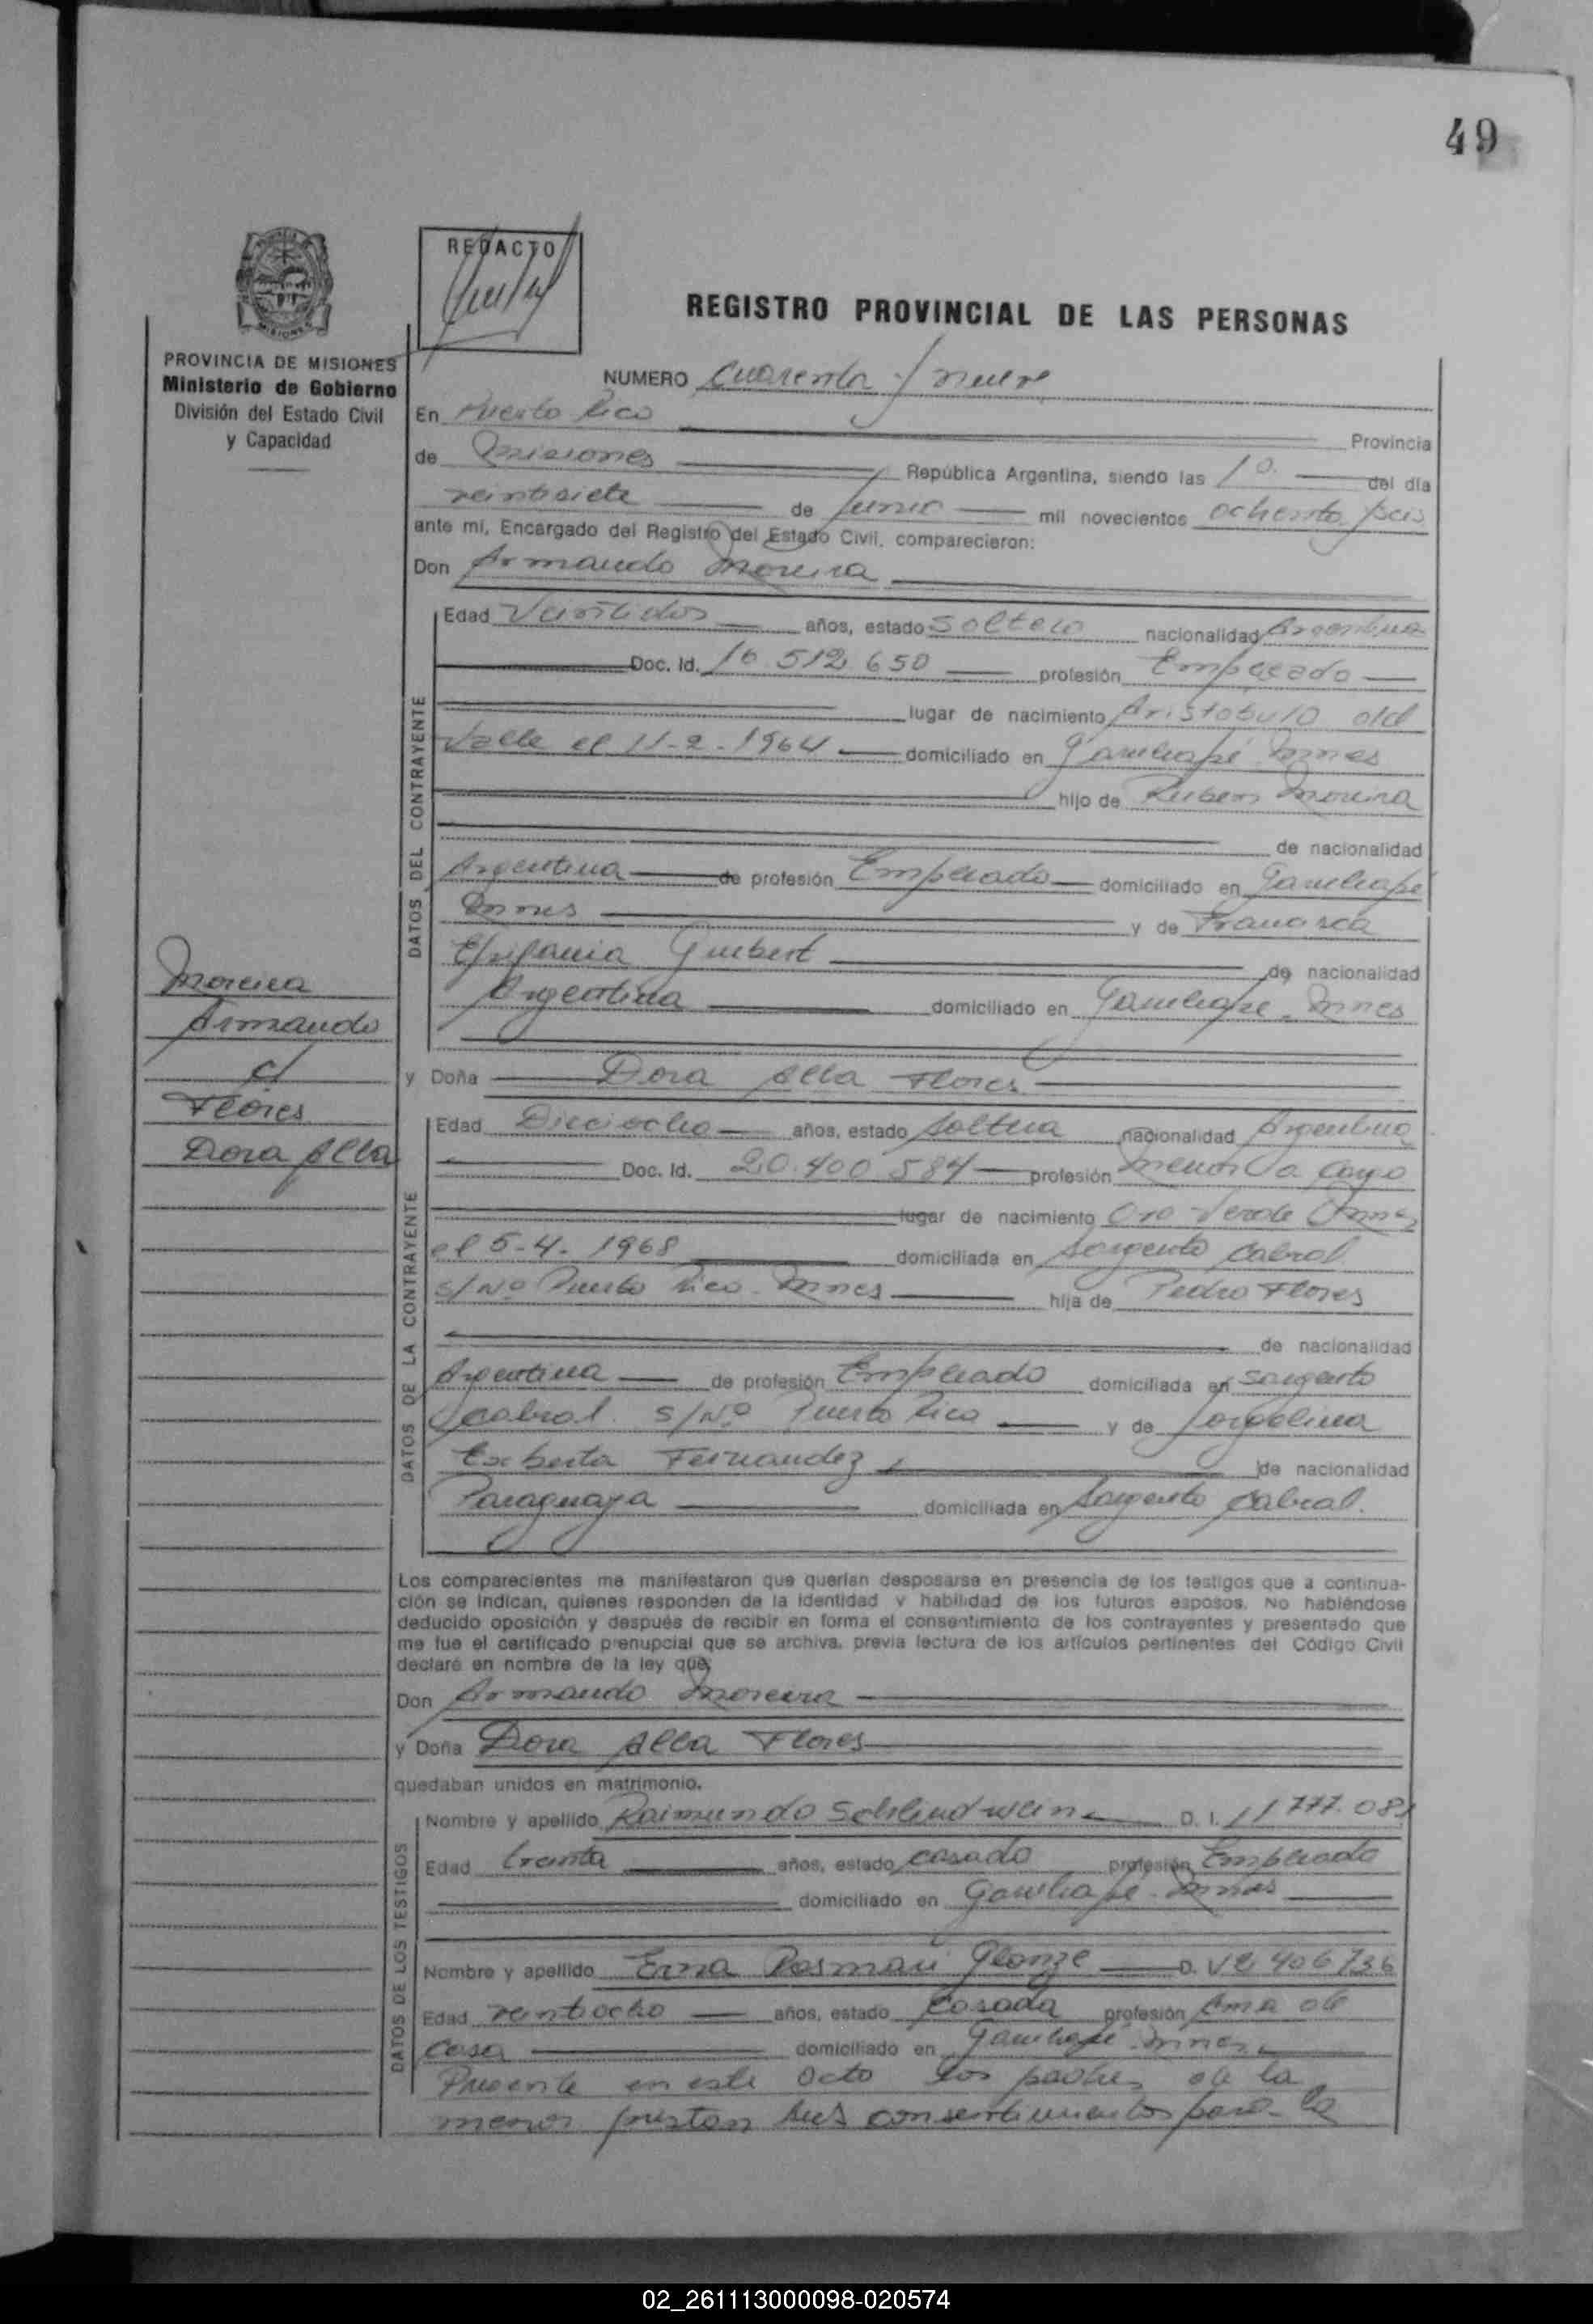 49
REDACTO
REGISTRO PROVINCIAL DE LAS PERSONAS
PROVINCIA DE MISIONES
Ministerio de Gobierno
División del Estado Civil
y Capacidad
NUMERO Cuarenta y nueve
En Puerto Rico Provincia
de Misiones República Argentina, siendo las 10 del día
veintisiete de Junio mil novecientos ochenta y seis
ante mí, Encargado del Registro del Estado Civil, comparecieron:
Don Armando Moreira
DATOS DEL CONTRAYENTE
Edad Veintidos años, estado Soltero nacionalidad Argentina
Doc. Id. 16.512.650 profesión Empleado
lugar de nacimiento Aristobulo del
Valle el 11-2-1964 domiciliado en Garuhapé Mnes
hijo de Ruben Moreira
de nacionalidad
Argentina de profesión Empleado domiciliado en Garuhapé
Mnes y de Francisca
Epifania Guibert de nacionalidad
Argentina domiciliado en Garuhape - Mnes
Moreira
Armando
c/
Flores
Dora Alba
y Doña Dora Alba Flores
DATOS DE LA CONTRAYENTE
Edad Dieciocho años, estado Soltera nacionalidad Argentina
Doc. Id. 20.400.584 profesión menor a cargo
lugar de nacimiento Oro Verde Mnes
el 5-4-1968 domiciliada en Sargento Cabral
s/Nº Puerto Rico - Mnes hija de Pedro Flores
de nacionalidad
Argentina de profesión Empleado domiciliada en Sargento
Cabral s/Nº Puerto Rico y de Jorgelina
Fernandez de nacionalidad
Paraguaya domiciliada en Sargento Cabral.
Los comparecientes me manifestaron que querían desposarse en presencia de los testigos que a continua-
ción se indican, quienes responden de la identidad y habilidad de los futuros esposos. No habiéndose
deducido oposición y después de recibir en forma el consentimiento de los contrayentes y presentado que
me fue el certificado prenupcial que se archiva, previa lectura de los artículos pertinentes del Código Civil
declaré en nombre de la ley que:
Don Armando Moreira
y Doña Dora Alba Flores
quedaban unidos en matrimonio.
DATOS DE LOS TESTIGOS
Nombre y apellido Raimundo Schlindwein D. I. 11.777.081
Edad treinta años, estado casado profesión Empleado
domiciliado en Garuhapé - Mnes
Nombre y apellido Erna D. 12 406 736
Edad veintiocho años, estado casada profesión Ama de
Casa domiciliado en Garuhapé - Mnes
Presente en este acto los padres de la
menor prestan sus consentimientos para la
02_261113000098-020574